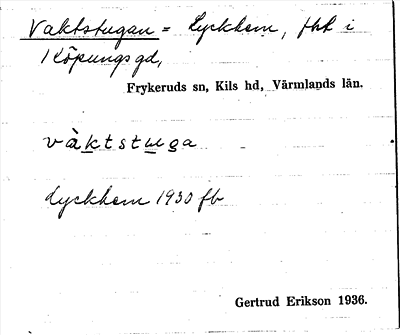 Vaktstugan = Lyckhem, fht i
Köpungs gd,
Frykeruds sn, Kils hd, Värmlands län.
vàktstuga
Lyckhem 1930 fb
Gertrud Erikson 1936.